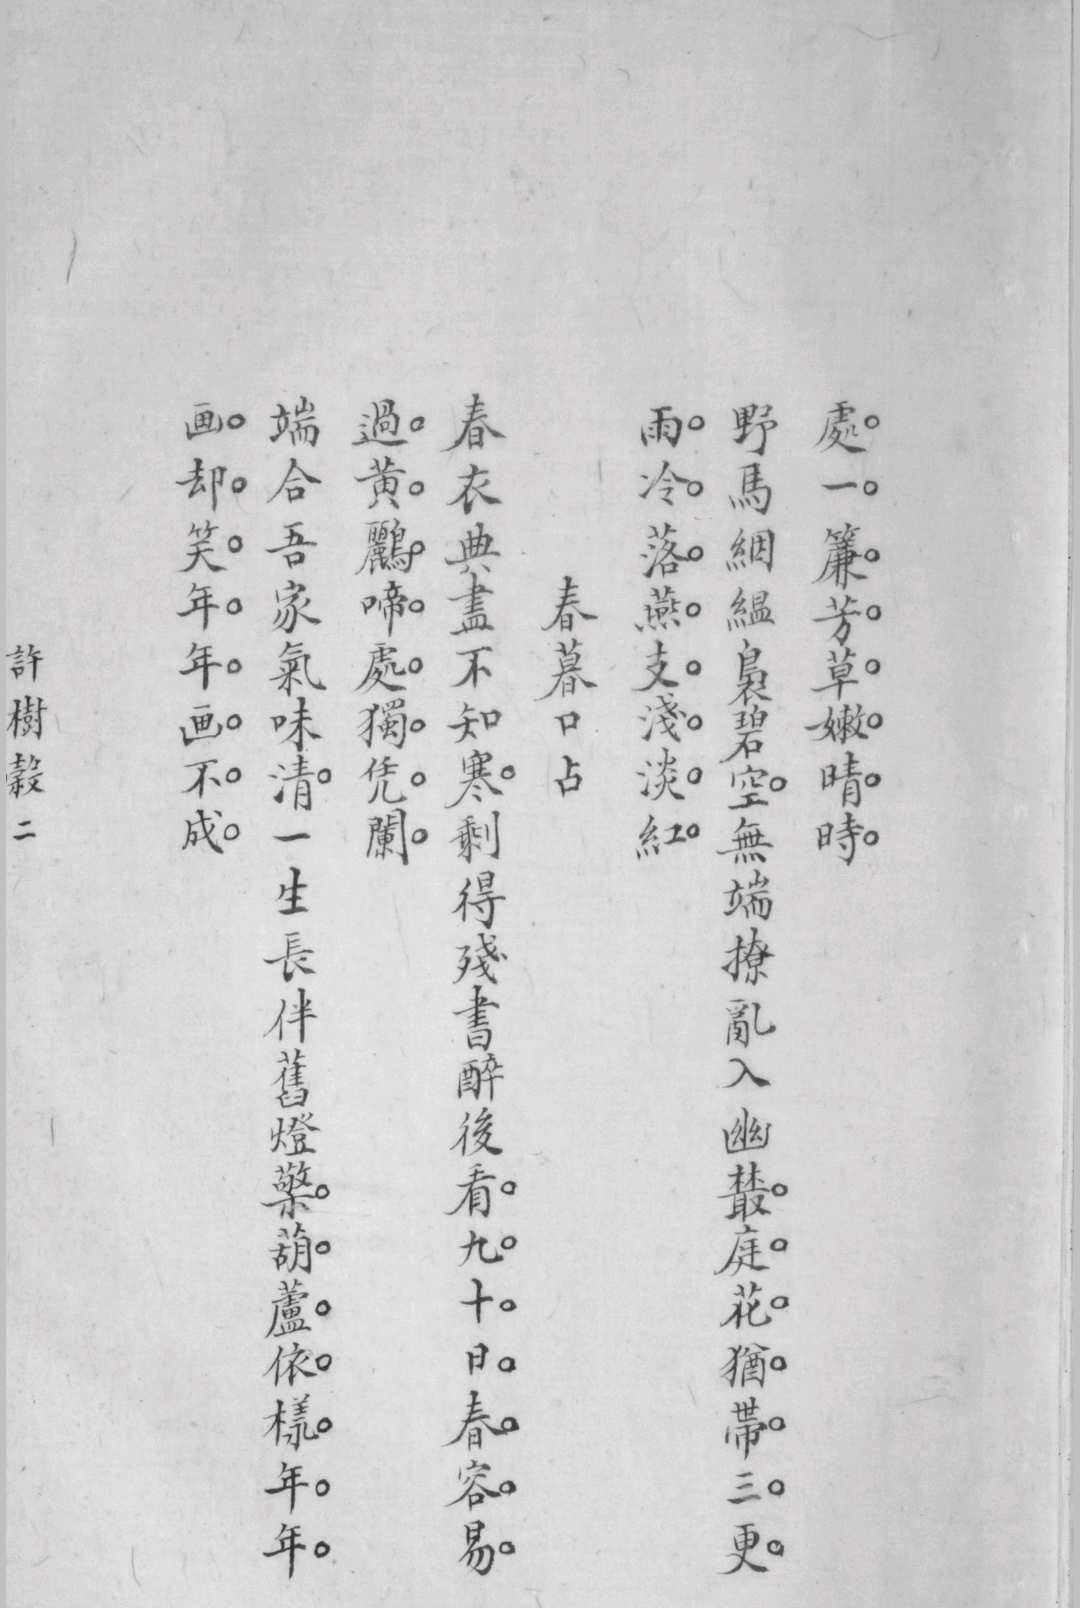 處一簾芳草嫩晴時
野馬絪緼裊碧空無端撩亂入幽叢庭花猶帶三更
雨冷落燕支淺淡紅
春暮口占
春衣典盡不知寒剩得殘書醉後看九十日春容易
過黃鸝啼處獨凭闌
端合吾家氣味清一生長伴舊燈檠葫蘆依樣年年
画却笑年年画不成
許樹穀二